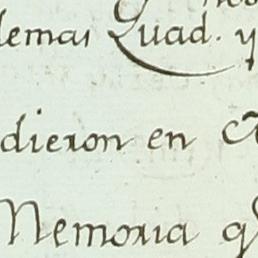 demas Quad. y
dieron en
Memoria